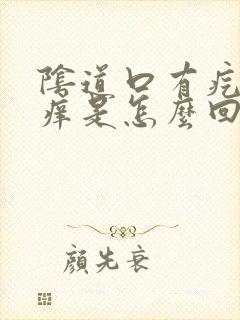 陰道口有疙
痒是怎麼回
顔先衰